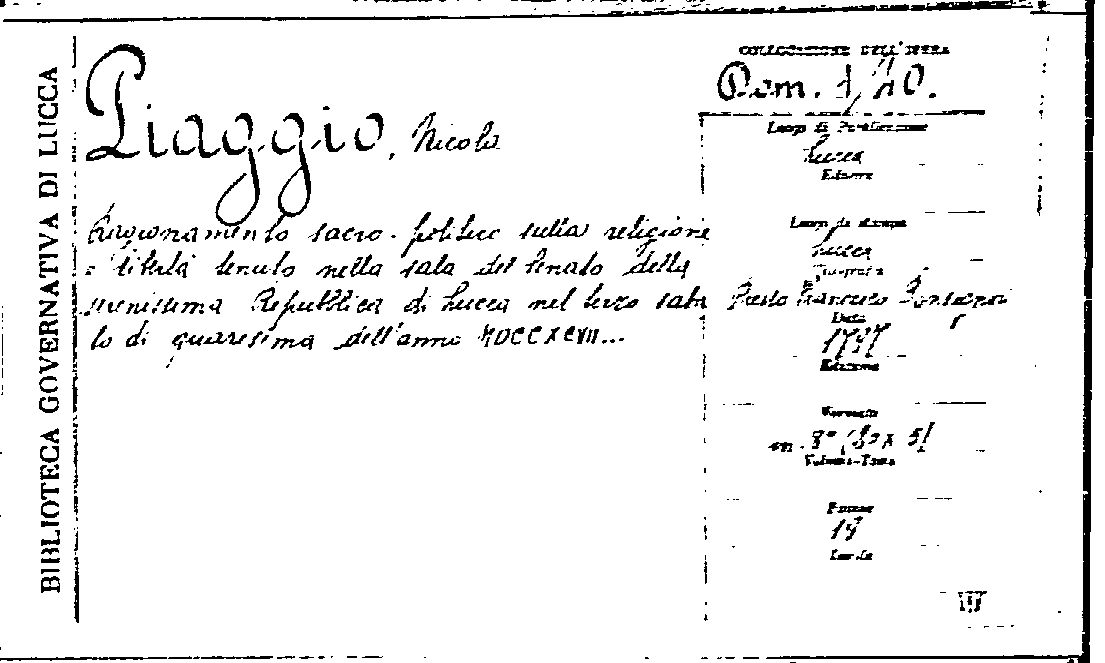 BIBLIOTECA GOVERNATIVA DI LUCCA
Piaggio, Nicola
Ragionamento sacro-politico sulla religione
e libertà tenuto nella sala del Senato della
serenissima Repubblica di Lucca nel terzo saba
to di quaresima dell'anno MDCCXCVII...
COLLOCAZIONE DELL'OPERA
Dom. 1/40.
Lucca
Edizione
Luogo di stampa
Lucca
Tipografia
Presso Francesco Bonsignori
Data
1797
Edizione
Formato
in 8°
Volume-Tomo
Pagine
19